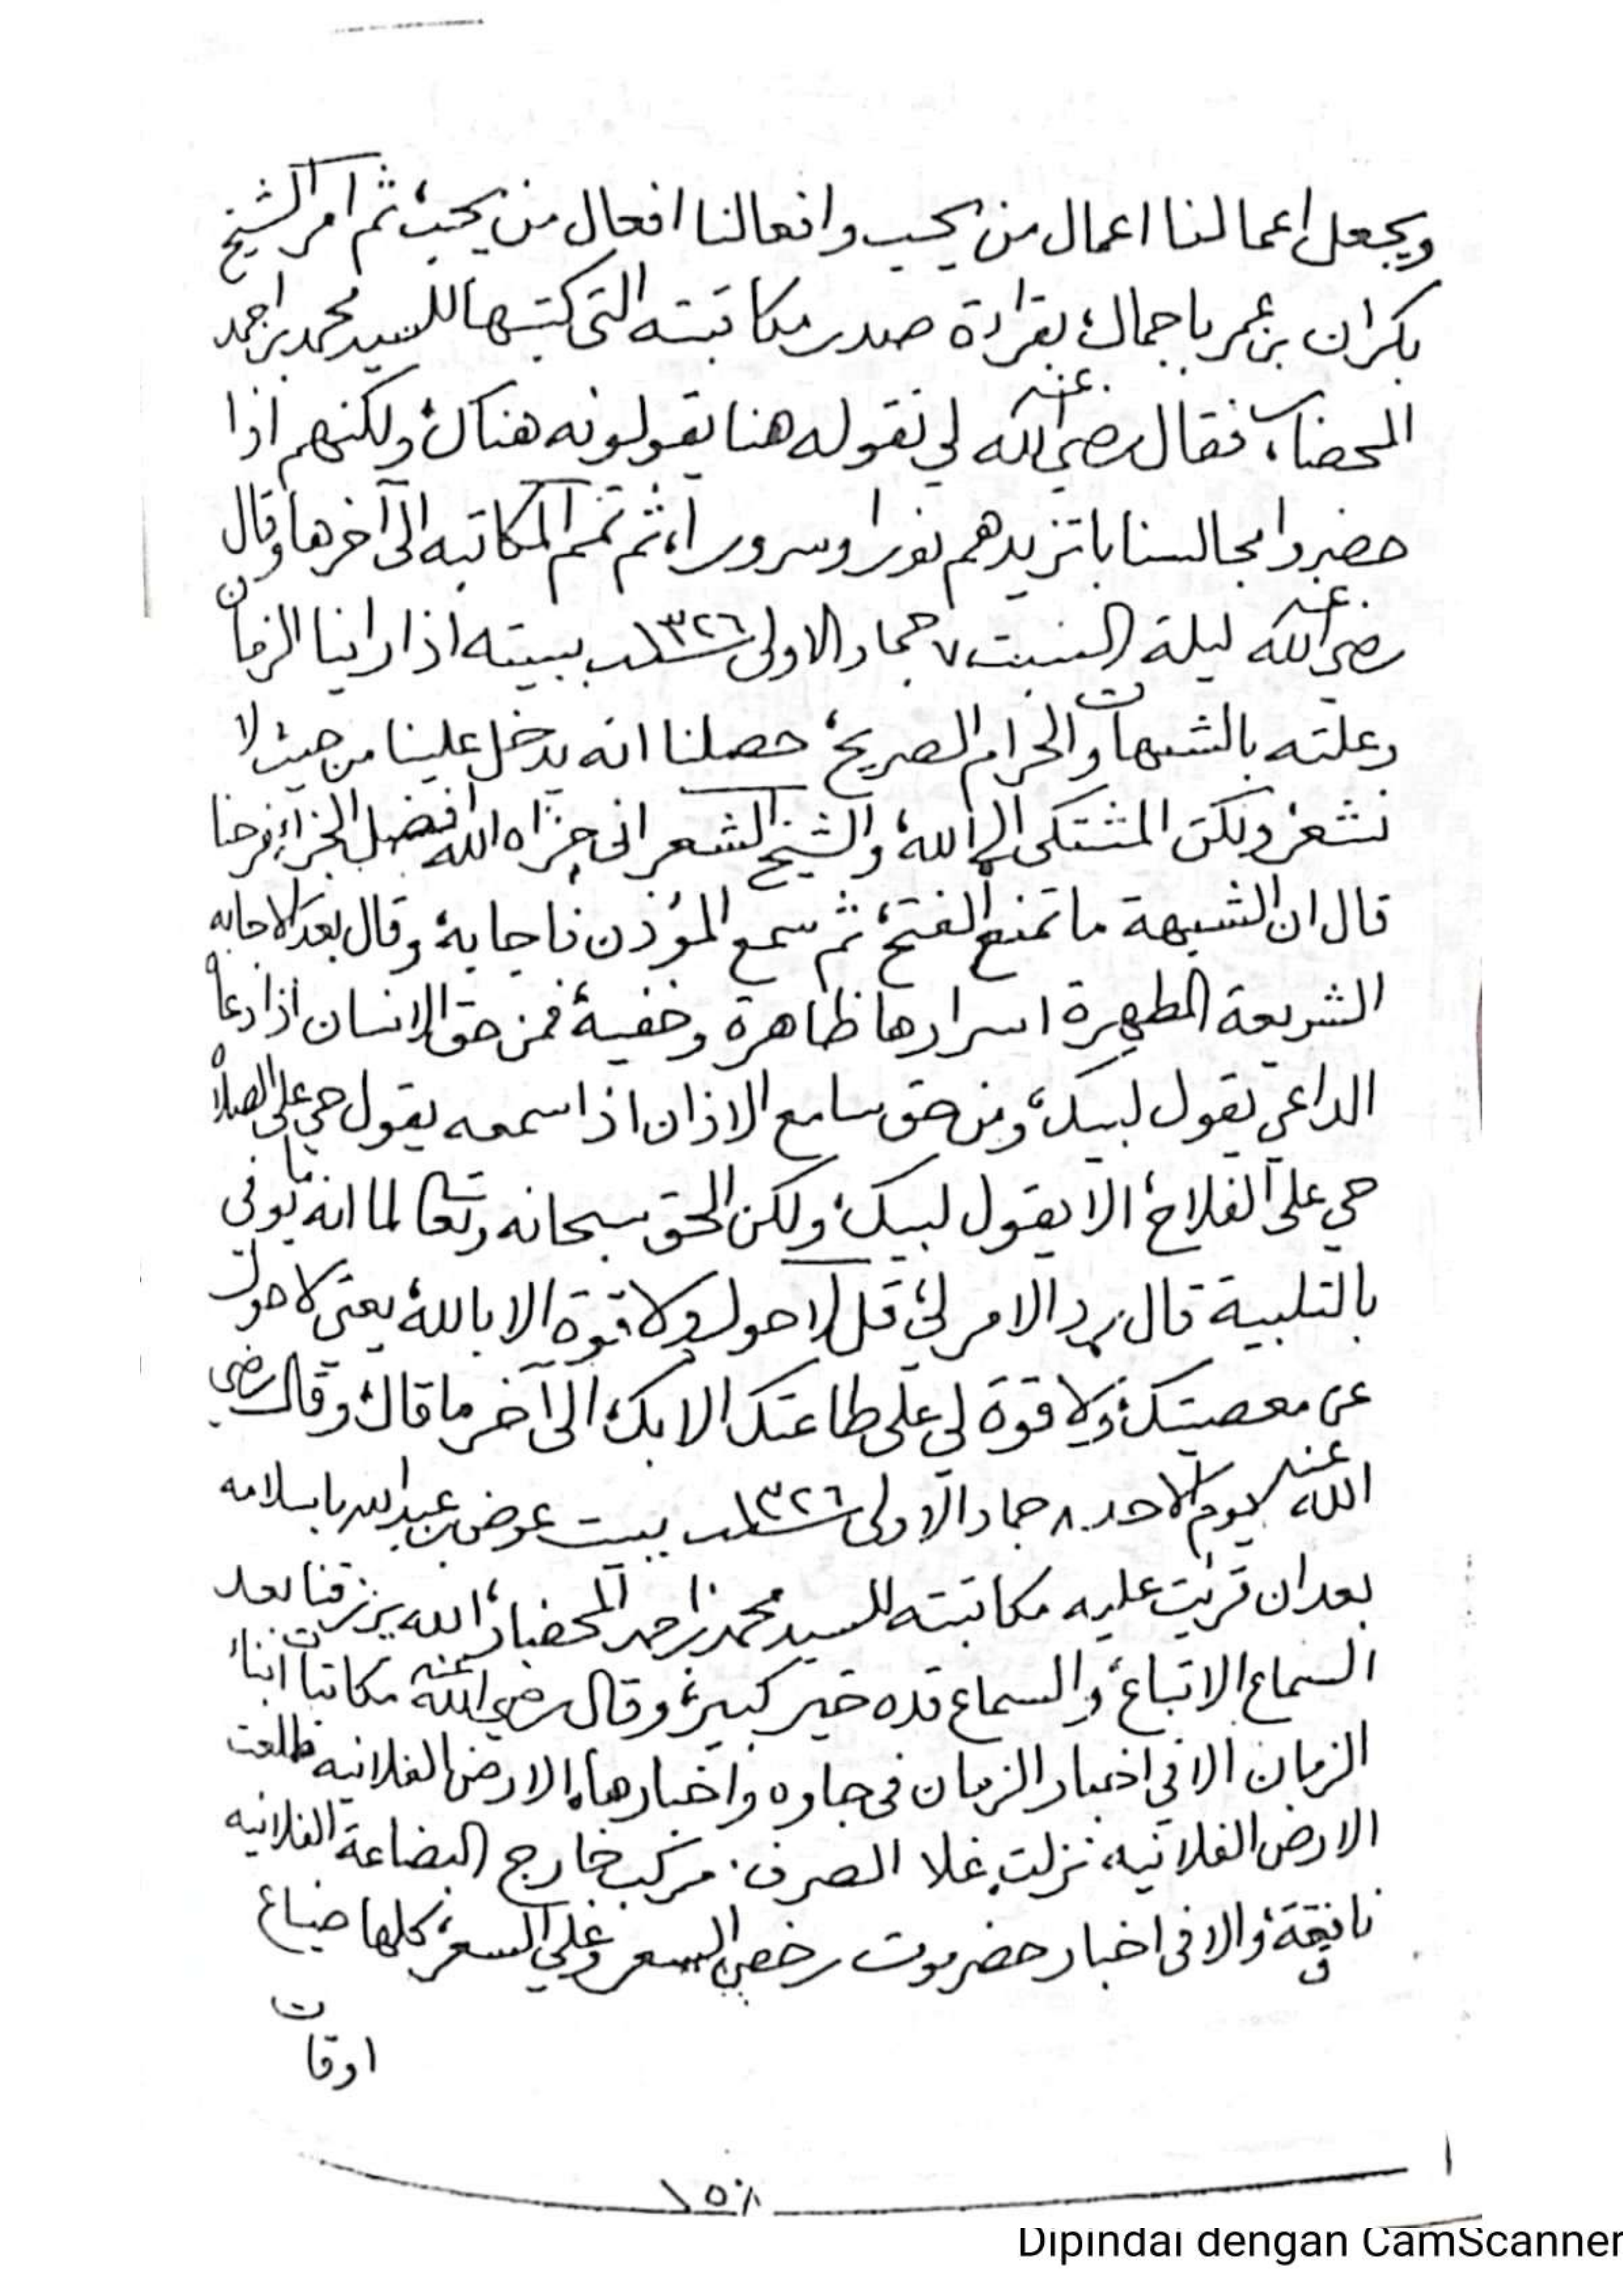 ويجعل اعمالنا اعمال من يحب وافعالنا افعال من يحب، ثم امر الشيخ
بكران بن عمر باجمال، بقراءة صدر مكاتبته التي كتبها للسيد محمد بن احمد
المحضار، فقال رضي الله عنه لي نقوله هنا يقولونه هناك، ولكنهم اذا
حضروا مجالسنا باتزيدهم نورا وسرورا، ثم تمم المكاتبه الى آخرها وقال
رضي الله عنه ليلة السبت ٧ جماد الاولى سنة ١٣٢٦ ببيته اذا راينا الزمان
وعلته بالشبهات والحرام الصريح، حصلنا انه يدخل علينا من حيث لا
نشعر، ولكن المشتكى الى الله، والشيخ الشعراني جزاه الله افضل الجزاء فرحنا
قال ان الشبهة ما تمنع الفتح، ثم سمع المؤذن فاجابه، وقال بعد الاجابه
الشريعة المطهرة اسرارها ظاهرة وخفية، فمن حق الانسان اذا دعاه
الداعي يقول لبيك، ومن حق سامع الاذان اذا سمعه يقول حي على الصلاة
حي على الفلاح، الا يقول لبيك، ولكن الحق سبحانه وتعالى لما انه ما يوفي
بالتلبية قال رد الامر لي، قل لا حول ولا قوة الا بالله، يعني لا حول
عن معصيتك، ولا قوة لي على طاعتك الا بك، الى آخر ما قال، وقال رضي
الله عنه يوم الاحد ٨ جماد الاولى سنة ١٣٢٦ ببيت عوض بن عبدالله باسلامه
بعد ان قريت عليه مكاتبته للسيد محمد بن احمد المحضار، الله يرزقنا بعد
السماع الاتباع، والسماع قده خير كبير، وقال رضي الله عنه مكاتبات ابناء
الزمان الا في اخبار الزمان في جاوه واخبارها، الارض الفلانيه طلعت
الارض الفلانيه، نزلت، غلا الصرف، مركب خارج البضاعة الفلانيه
نافقة، والا في اخبار حضرموت رخص السعر وغلي السعر، كلها ضياع
اوقات
١٥٨
Dipindai dengan CamScanner